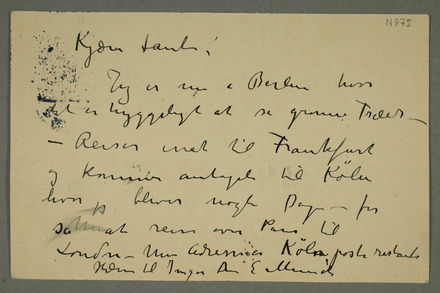 N975
Kjære tante!
Jeg er nu i Berlin hvor
det er hyggeligt at se grønne Træer –
– Reiser mat til Frankfurt
og kommer antagelig til Köln
hvor jeg bliver nogle Dage – for
så at reise over Paris til
London – Min Adresse: Köln poste restante
Hilsen til Inger Din E. Munch